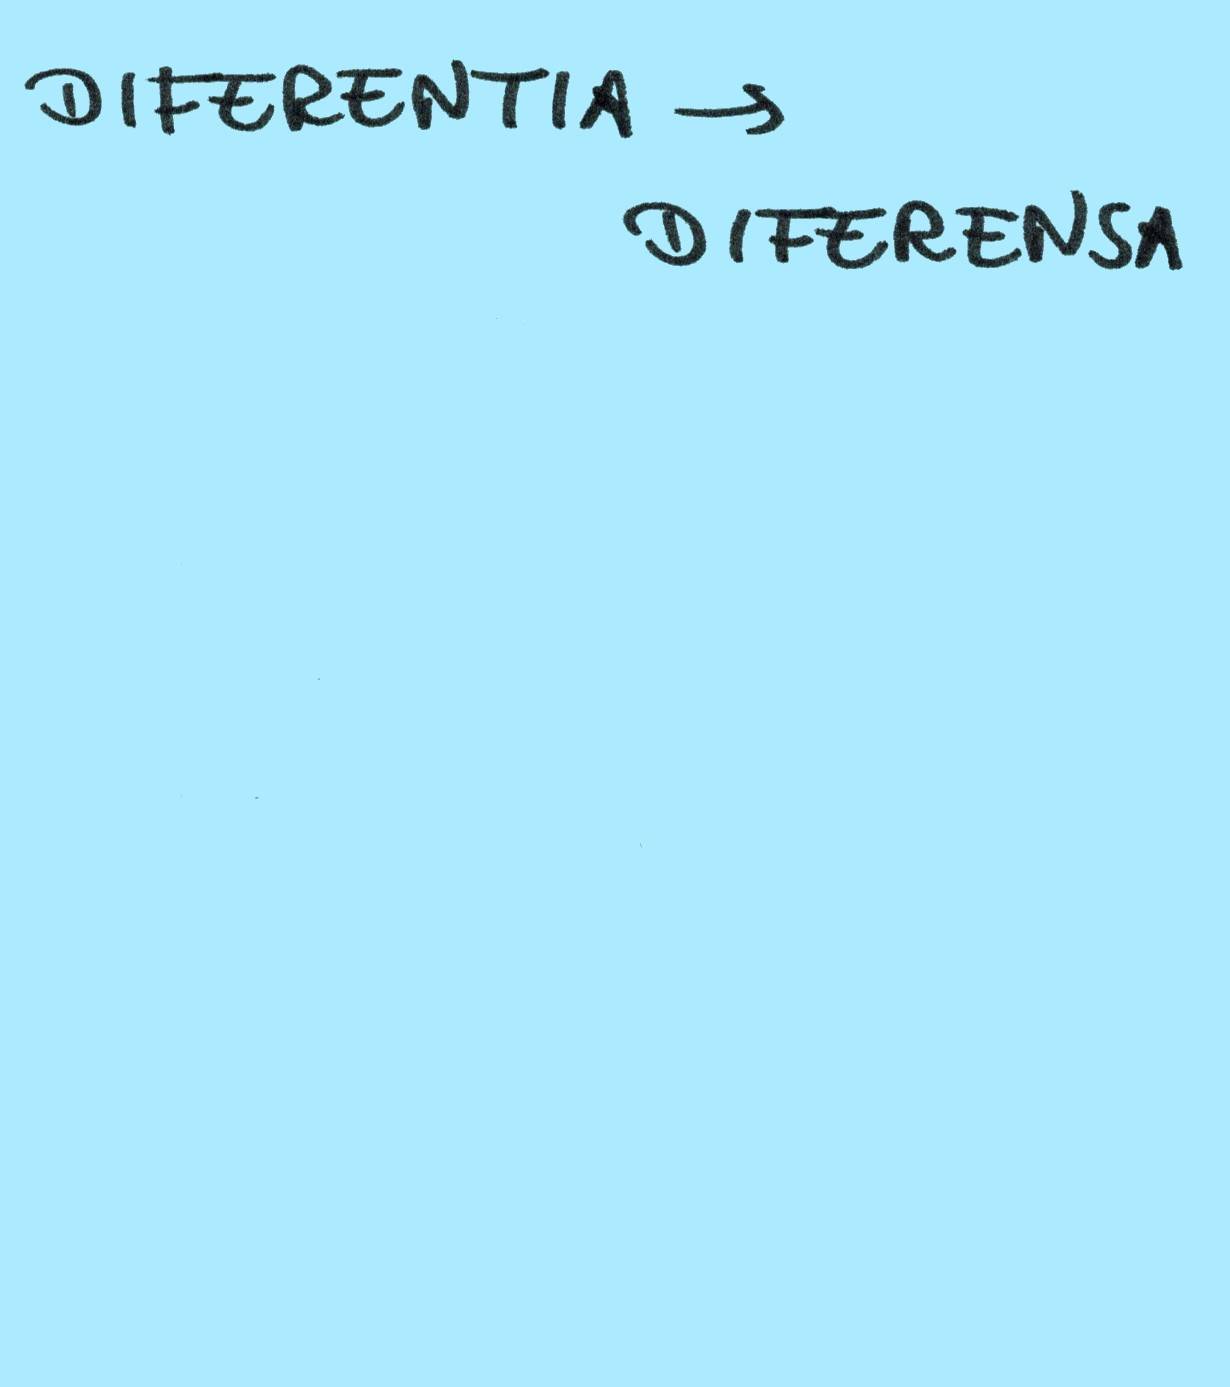 DIFERENTIA →
DIFERENSA